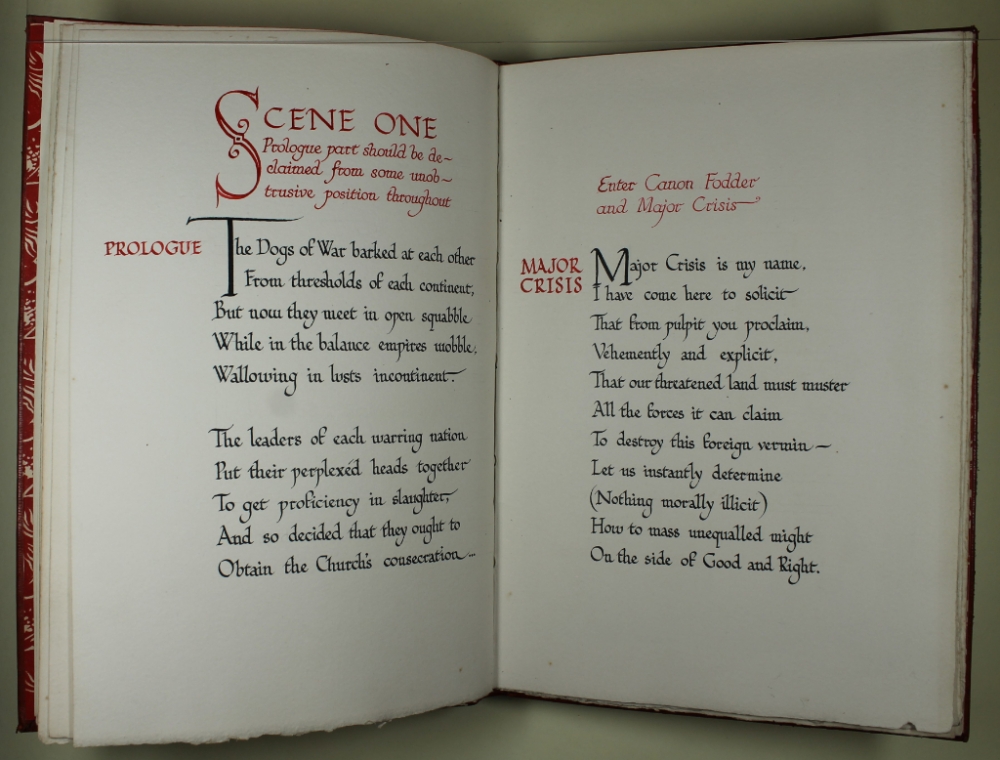 SCENE ONE
Prologue part should be de-
claimed from some unob-
trusive position throughout
PROLOGUE
The Dogs of War barked at each other
From thresholds of each continent,
But now they meet in open squabble
While in the balance empires wobble,
Wallowing in lusts incontinent.
The leaders of each warring nation
Put their perplexéd heads together
To get proficiency in slaughter,
And so decided that they ought to
Obtain the Church's consecration—
Enter Canon Fodder
and Major Crisis
MAJOR
CRISIS
Major Crisis is my name,
I have come here to solicit
That from pulpit you proclaim,
Vehemently and explicit,
That our threatened land must muster
All the forces it can claim
To destroy this foreign vermin—
Let us instantly determine
(Nothing morally illicit)
How to mass unequalled might
On the side of Good and Right.